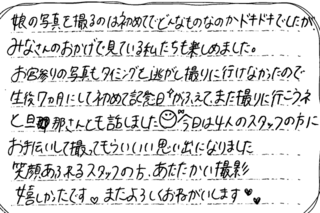 娘の写真を撮るのは初めてでどんなものなのかドキドキでしたが
みなさんのおかげで見ている私たちも楽しめました。
お宮参りの写真もタイミングと逃がし撮りに行けなかったので
生後7ヵ月にして初めて記念日がふえてまた撮りに行こうネ
と旦那さんとも話しました 今日は4人のスタッフの方に
お手伝いして撮ってもらういい思い出になりました
笑顔あふれるスタッフの方、あたたかい撮影
嬉しかったです。またよろしくおねがいします